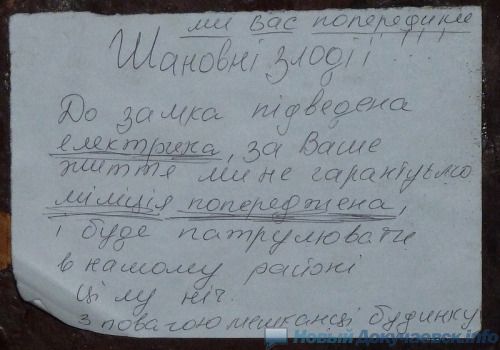 ми вас попередили
Шановні злодії!
До замка підведена
електрика, за Ваше
життя ми не гарантуємо
міліція попереджена,
і буде патрулювати
в нашому районі
цілу ніч.
з повагою мешканці будинку
Новый Докучаевск.info